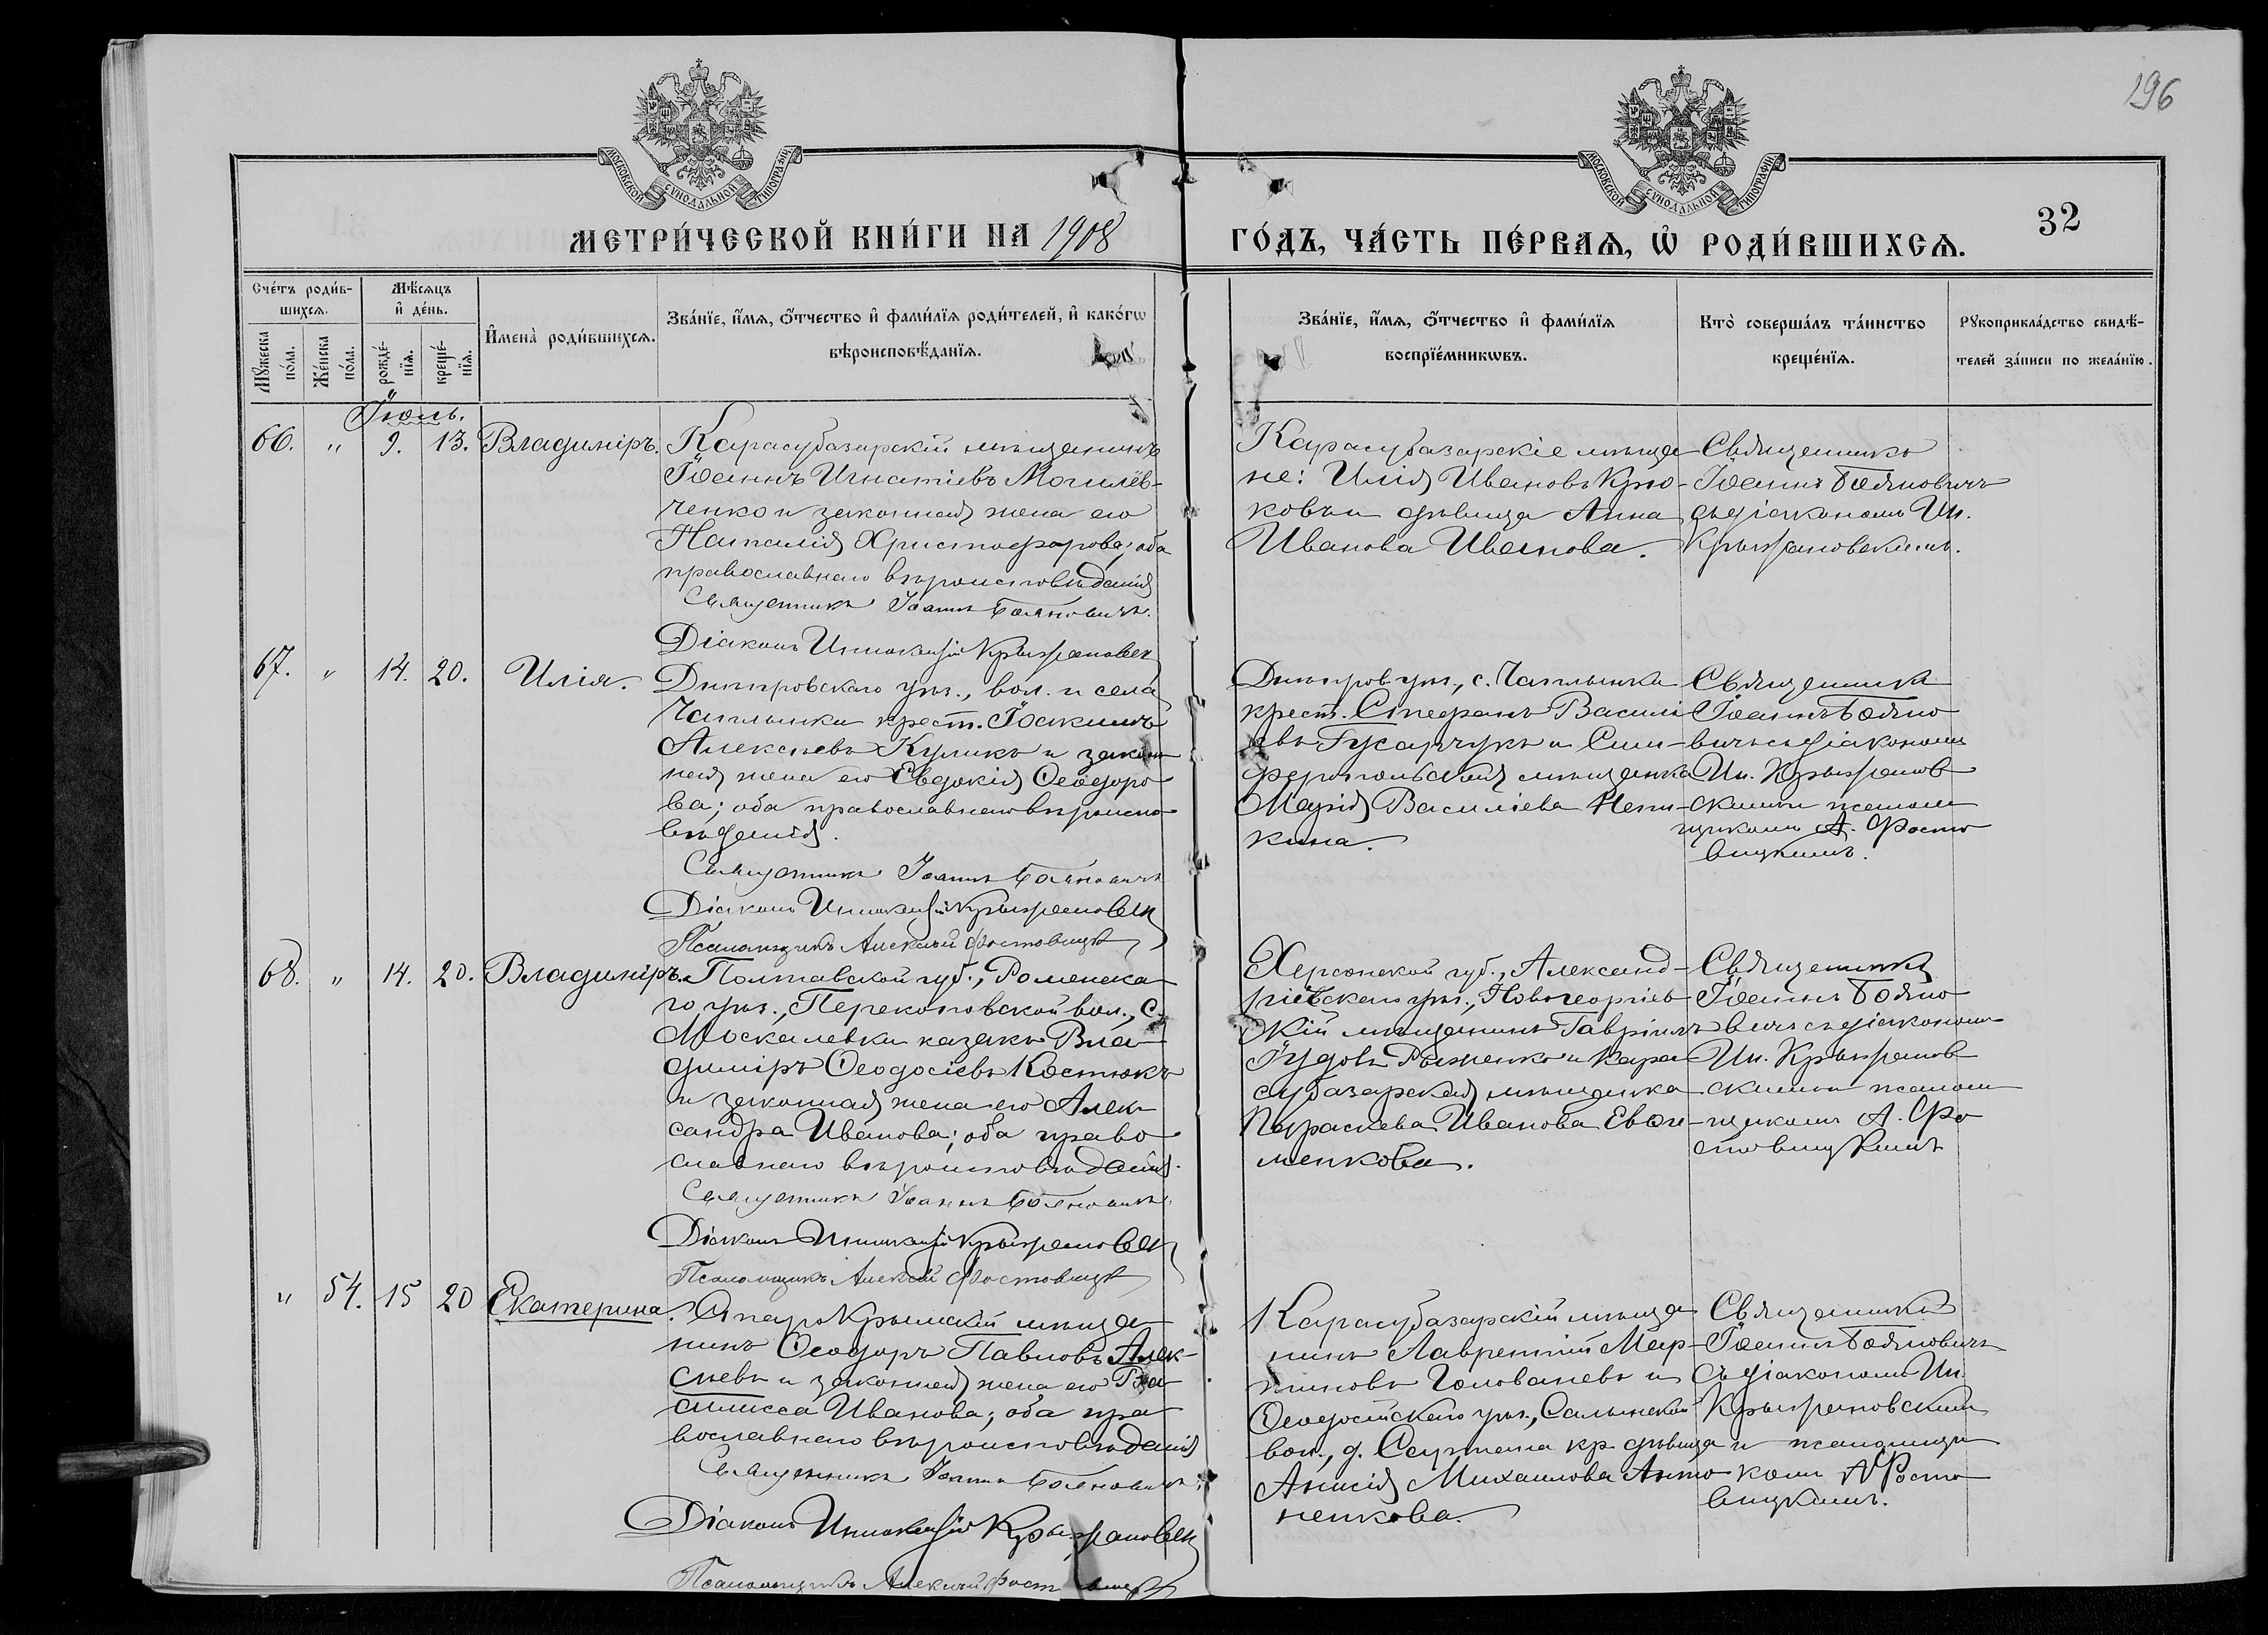 196
МОСКОВСКОЙ СУНОДАЛЬНОЙ ТИПОГРАФІИ
МОСКОВСКОЙ СУНОДАЛЬНОЙ ТИПОГРАФІИ
МЕТРИ́ЧЕСКОЙ КНИ́ГИ НА 1908
ГО́ДЪ, ЧА́СТЬ ПЕ́РВАѦ, Ѡ҆ РОДИ́ВШИХСѦ.
32
Сче́тъ роди́в-
шихсѧ.
Мѣ́сѧцъ
и҆ де́нь.
Мꙋ́жеска
по́ла.
Же́нска
по́ла.
рожде́-
нїѧ.
креще́-
нїѧ.
И҆мена̀ роди́вшихсѧ.
Зва́нїе, и҆́мѧ, ѻ҆́тчество и҆ фами́лїѧ роди́телей, и҆ како́гѡ
вѣроисповѣ́данїѧ.
Зва́нїе, и҆́мѧ, ѻ҆́тчество и҆ фами́лїѧ
воспрїе́мникѡвъ.
Кто̀ соверша́лъ та́инство
креще́нїѧ.
Рꙋкоприкла́дство свидѣ́-
телей за́писи по жела́нїю.
Іюль.
66. " 9. 13. Владиміръ.
Карасубазарскій мѣщанинъ
Іоаннъ Игнатіевъ Могилёв-
ченко и законная жена его
Наталія Христофорова; оба
православнаго вѣроисповѣданія
Священникъ Іоаннъ Бояновичъ.
Діаконъ Иннокентій
Карасубазарскіе мѣща
не: Илія Ивановъ Крю-
ковъ и дѣвица Анна
Иванова Иванова.
Священникъ
Іоаннъ Бояновичъ
съ діакономъ Ин.
67. " 14. 20. Илія.
Днѣпровскаго уѣз., вол. и села
Чаплынки крест. Іоакимъ
Алексѣевъ Куликъ и закон
ная жена его Евдокія Ѳеодоро
ва; оба православнаго вѣроиспо
вѣданія.
Священникъ Іоаннъ Бояновичъ
Діаконъ Иннокентій
Псаломщикъ Алексѣй Фостовицкій
Днѣпров. уѣз., с. Чаплынка
крест. Стефанъ Василі
евъ Гусарчукъ и Сим-
феропольская мѣщанка
Марія Василіева
кина.
Священникъ
Іоаннъ Бояно
вичъ съ діакономъ
Ин.
скимъ и псалом
щикомъ А. Фосто
вицкимъ.
68. " 14. 20. Владиміръ.
Полтавской губ., Роменска
го уѣз., Перекоповской вол., с.
Москалевки казакъ Вла
диміръ Ѳеодосіевъ Костюкъ
и законная жена его Алек
сандра Иванова; оба право
славнаго вѣроисповѣданія.
Священникъ Іоаннъ Бояновичъ.
Діаконъ Иннокентій
Псаломщикъ Алексѣй Фостовицкій
Херсонской губ., Александ-
рійскаго уѣз., Новогеоргіев
скій мѣщанинъ Гавріилъ
Іудовъ и Кара
субазарская мѣщанка
Параскева Иванова
менкова.
Священникъ
Іоаннъ Бояно
вичъ съ діакономъ
Ин.
скимъ и псалом
щикомъ А. Фо
стовицкимъ
" 54. 15 20 Екатерина.
Старокрымскій мѣща
нинъ Ѳеодоръ Павловъ Алек-
сѣевъ и законная жена его Ва
силисса Иванова; оба пра
вославнаго вѣроисповѣданія
Священникъ Іоаннъ Бояновичъ.
Діаконъ Иннокентій
Псаломщикъ Алексѣй
Карасубазарскій мѣща
нинъ Лаврентій Мар-
тиновъ Голованевъ и
Ѳеодосійскаго уѣз., Салынской
вол., д. кр. дѣвица
Анисія Михаилова Анто
ненкова.
Священникъ
Іоаннъ Бояновичъ
съ діакономъ Ин.
и псаломщи
комъ А Фосто
вицкимъ.